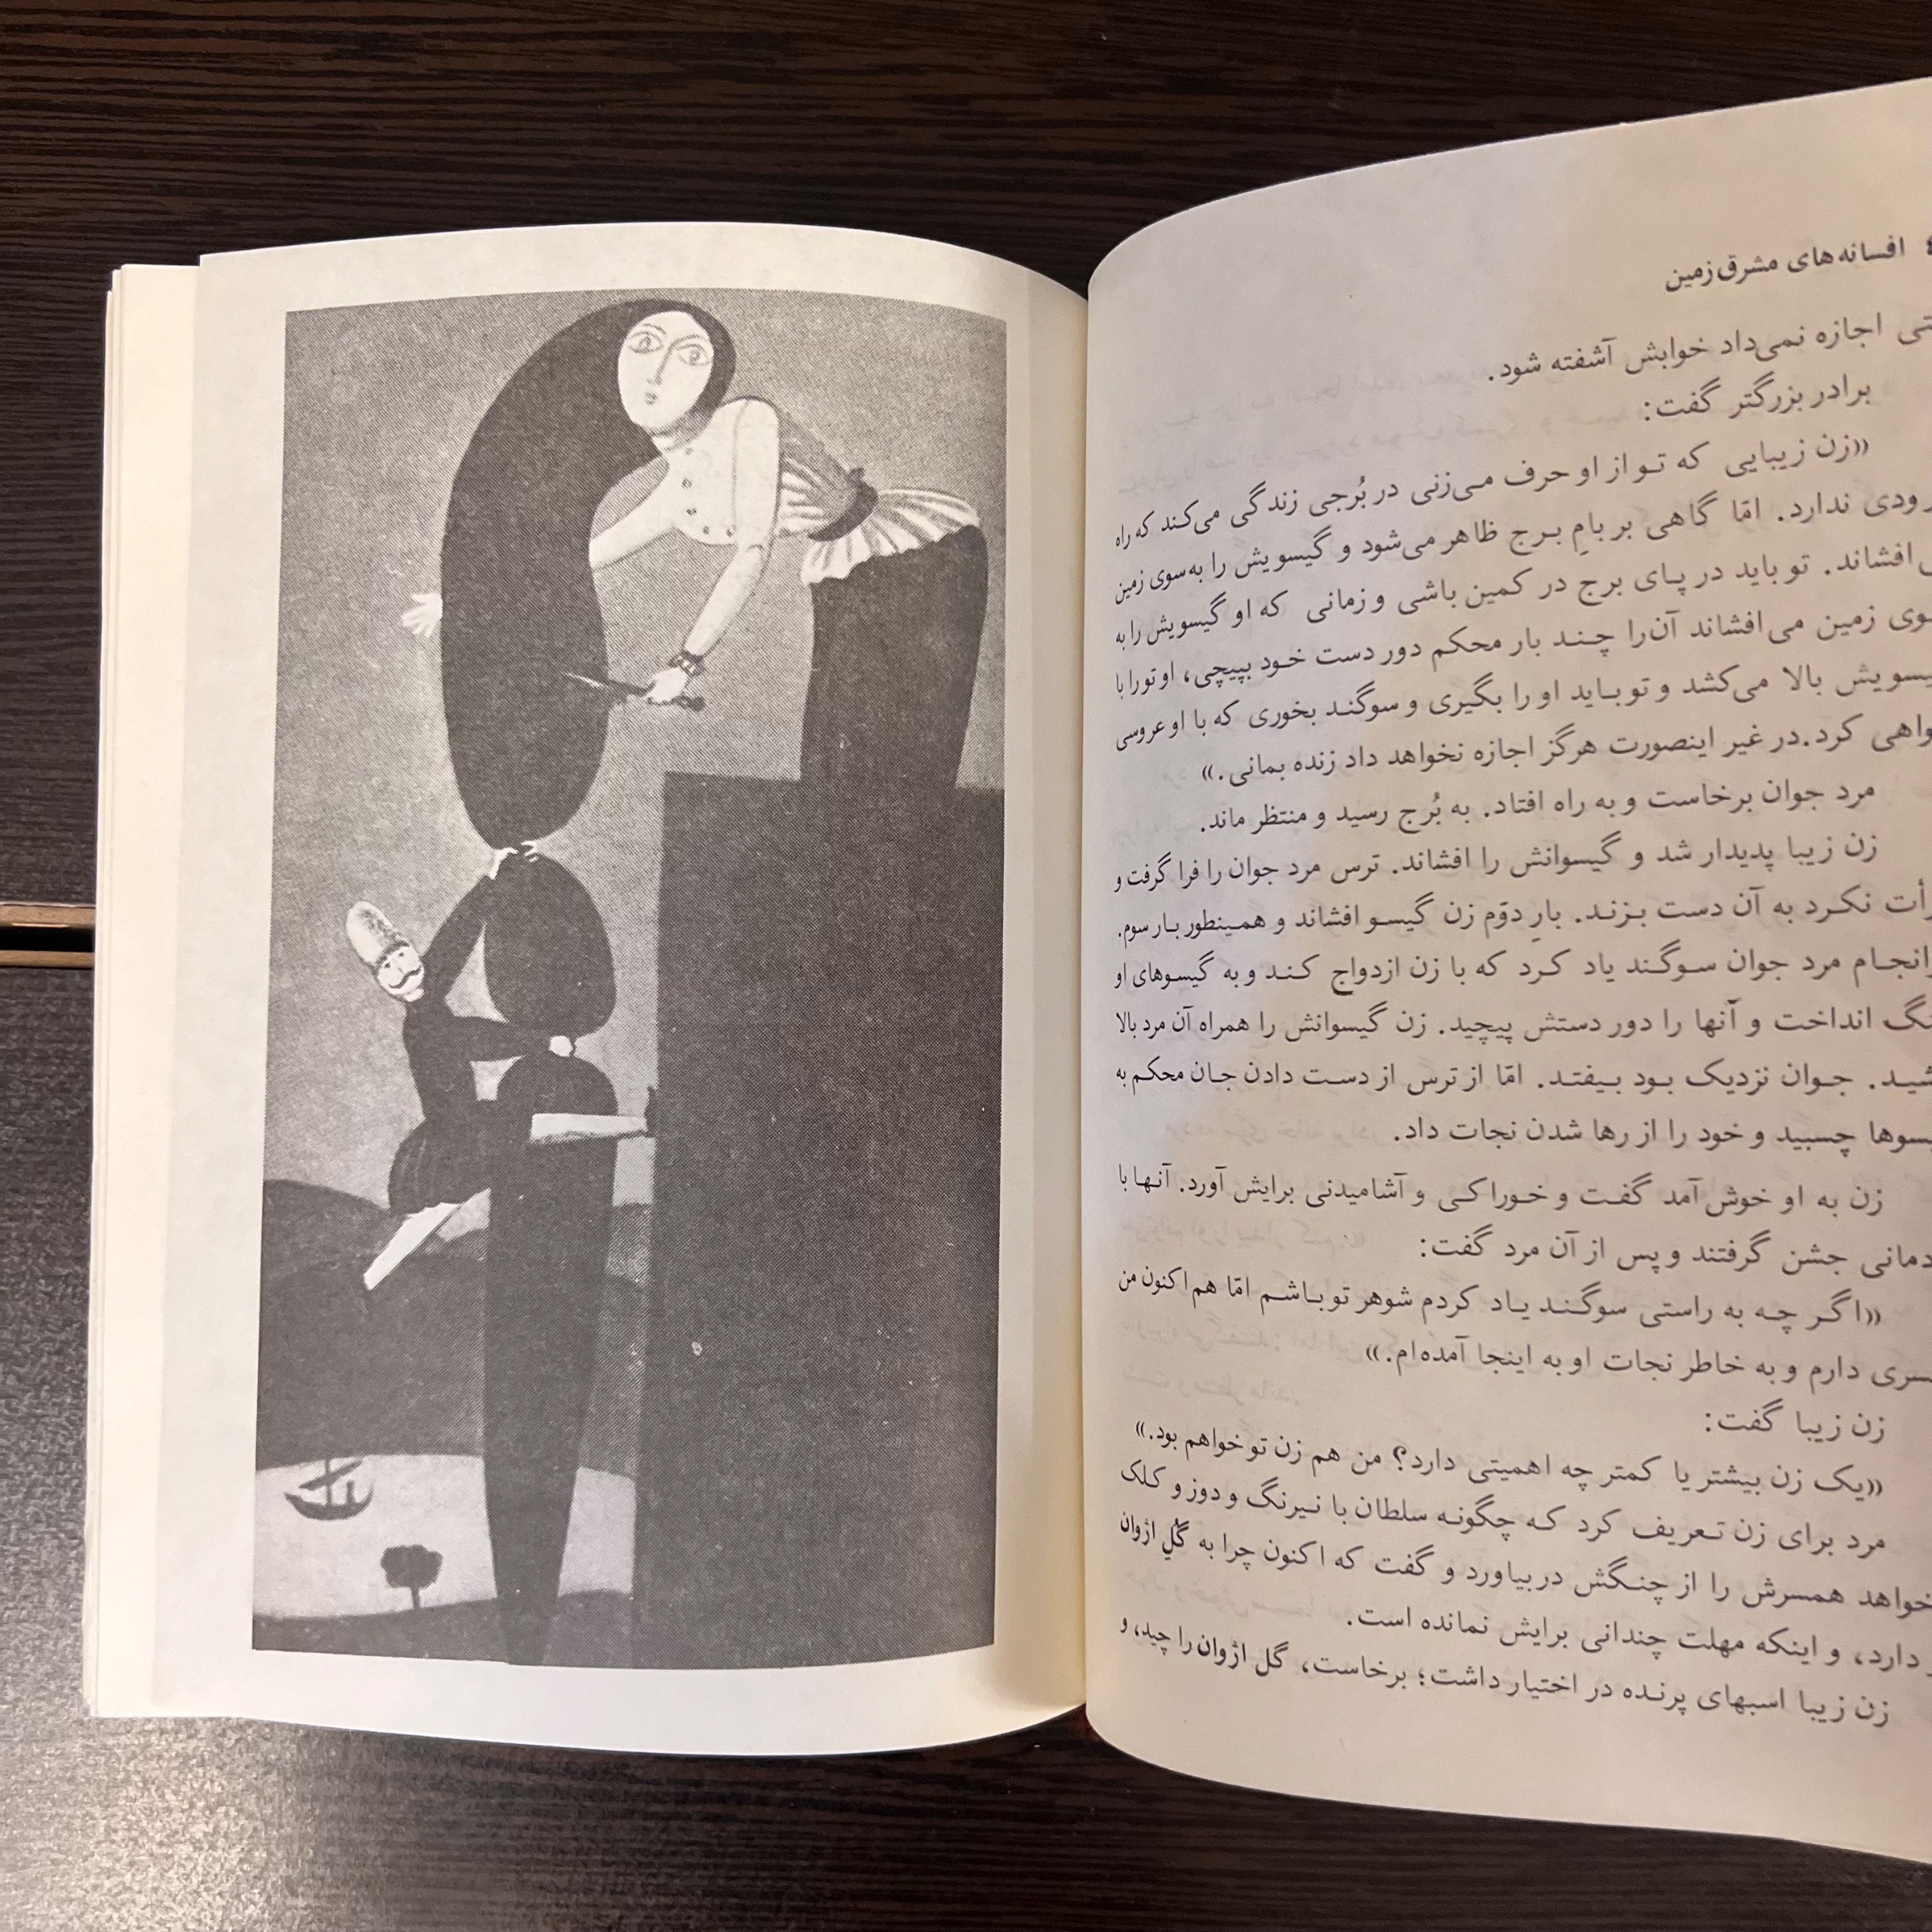 افسانه‌های مشرق‌زمین
اجازه نمی‌داد خوابش آشفته شود.
برادر بزرگتر گفت:
«زن زیبایی که تو از او حرف می‌زنی در بُرجی زندگی می‌کند که راه
ندارد. امّا گاهی بر بامِ برج ظاهر می‌شود و گیسویش را به‌سوی زمین
افشاند. تو باید در پای برج در کمین باشی و زمانی که او گیسویش را به
زمین می‌افشاند آن‌را چند بار محکم دور دست خود بپیچی، او تو را با
بالا می‌کشد و تو باید او را بگیری و سوگند بخوری که با او عروسی
کرد. در غیر اینصورت هرگز اجازه نخواهد داد زنده بمانی.»
مرد جوان برخاست و به راه افتاد. به بُرج رسید و منتظر ماند.
زن زیبا پدیدار شد و گیسوانش را افشاند. ترس مرد جوان را فرا گرفت و
نکرد به آن دست بزند. بارِ دوّم زن گیسو افشاند و همینطور بار سوم.
مرد جوان سوگند یاد کرد که با زن ازدواج کند و به گیسوهای او
انداخت و آنها را دور دستش پیچید. زن گیسوانش را همراه آن مرد بالا
جوان نزدیک بود بیفتد. امّا از ترس از دست دادن جان محکم به
چسبید و خود را از رها شدن نجات داد.
زن به او خوش‌آمد گفت و خوراکی و آشامیدنی برایش آورد. آنها با
جشن گرفتند و پس از آن مرد گفت:
«اگر چه به راستی سوگند یاد کردم شوهر تو باشم امّا هم‌اکنون من
دارم و به خاطر نجات او به اینجا آمده‌ام.»
زن زیبا گفت:
«یک زن بیشتر یا کمتر چه اهمیتی دارد؟ من هم زن تو خواهم بود.»
مرد برای زن تعریف کرد که چگونه سلطان با نیرنگ و دوز و کلک
همسرش را از چنگش دربیاورد و گفت که اکنون چرا به گُلِ اژوان
دارد، و اینکه مهلت چندانی برایش نمانده است.
زن زیبا اسبهای پرنده در اختیار داشت؛ برخاست، گل اژوان را چید، و